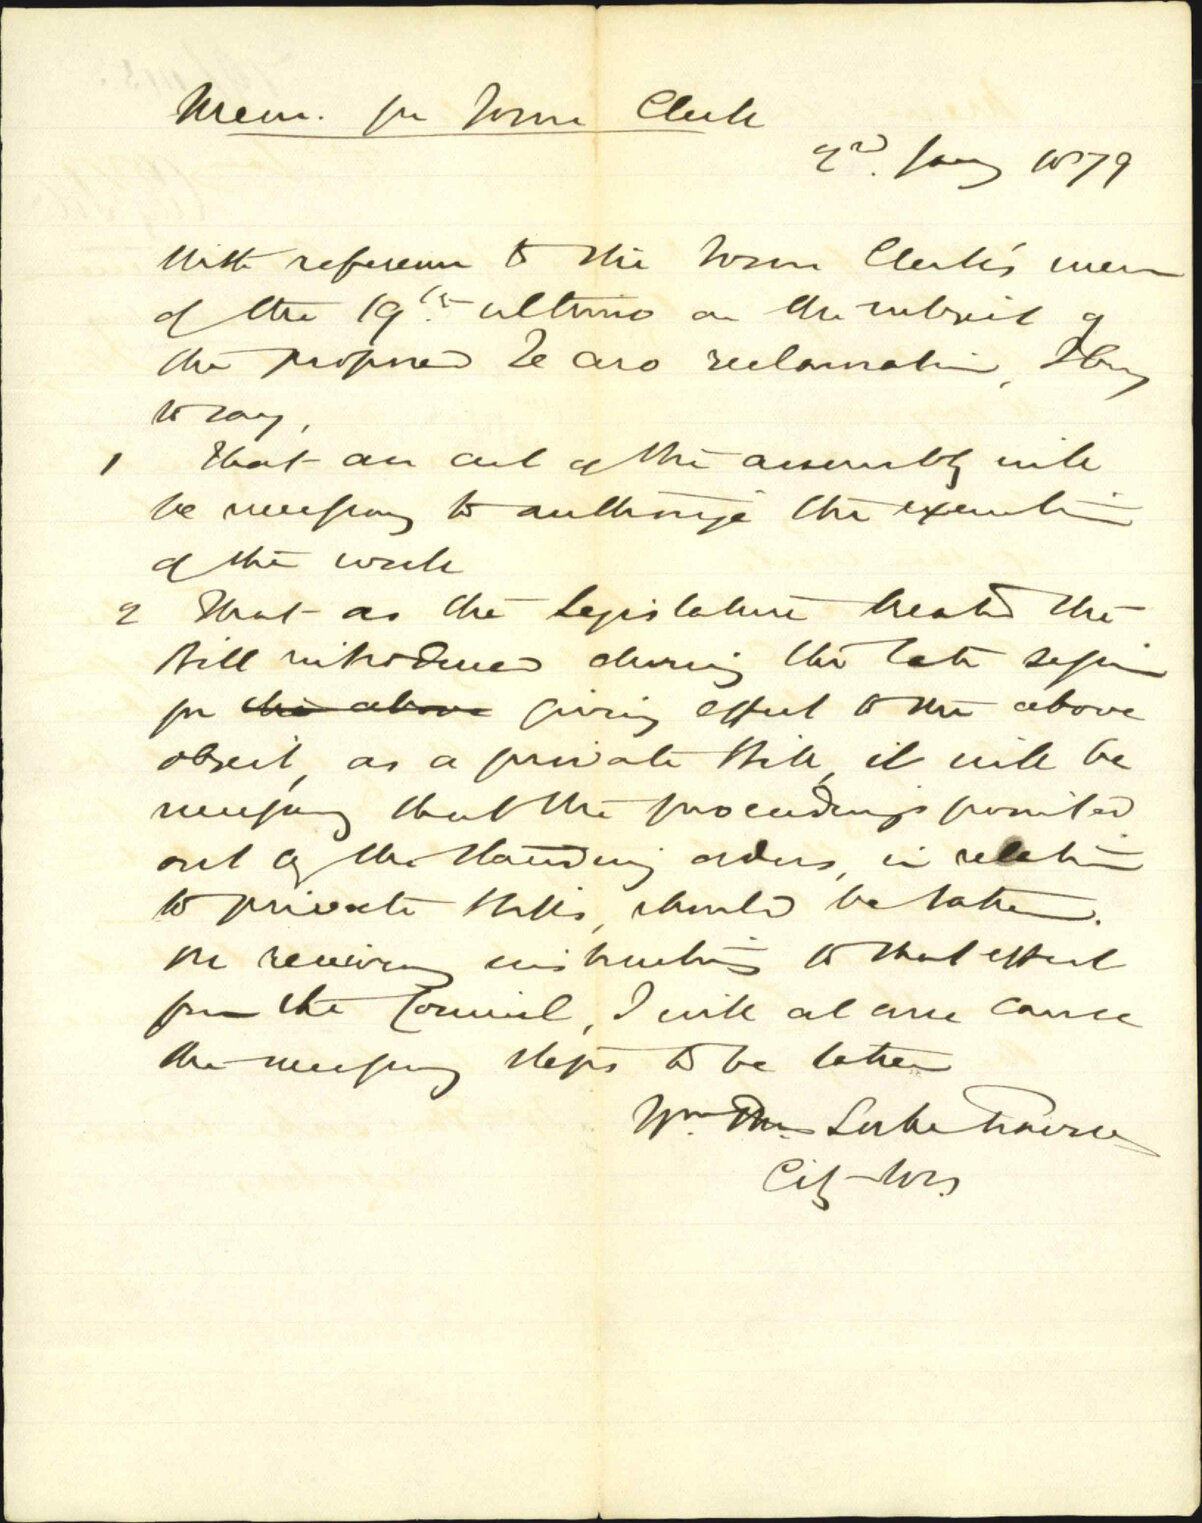 Mem. for Town Clerk
2nd. Jany 1879
With reference to the Town Clerk's mem
of the 19th. ultimo on the subject of
the proposed Te Aro reclamation, I beg
to say,
1 That an act of the assembly will
be necessary to authorize the execution
of the work
2 That as the Legislature treated the
Bill introduced during the late session
for the above giving effect to the above
object, as a private Bill, it will be
necessary that the proceedings pointed
out by the standing orders, in relation
to private Bills, should be taken.
On receiving instructions to that effect
from the Council, I will at once cause
the necessary steps to be taken
Wm. Thos. Locke Travers
City Solr.